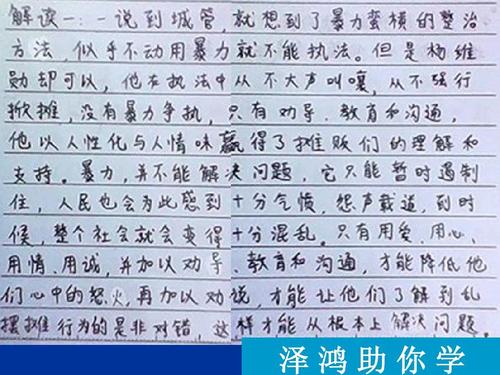 解读一：一说到城管，就想到了暴力蛮横的整治
方法，似乎不动用暴力就不能执法。但是杨维
勋却可以，他在执法中从不大声叫嚷，从不强行
掀摊，没有暴力争执，只有劝导、教育和沟通，
他以人性化与人情味赢得了摊贩们的理解和
支持。暴力，并不能解决问题，它只能暂时遏制
住，人民也会为此感到十分气愤，怨声载道，到时
候，整个社会就会变得十分混乱。只有用爱、用心、
用情、用诚，并加以劝导、教育和沟通，才能降低他
们心中的怒火，再加以劝说，才能让他们了解到乱
摆摊行为的是非对错，这样才能从根本上解决问题。
泽鸿助你学